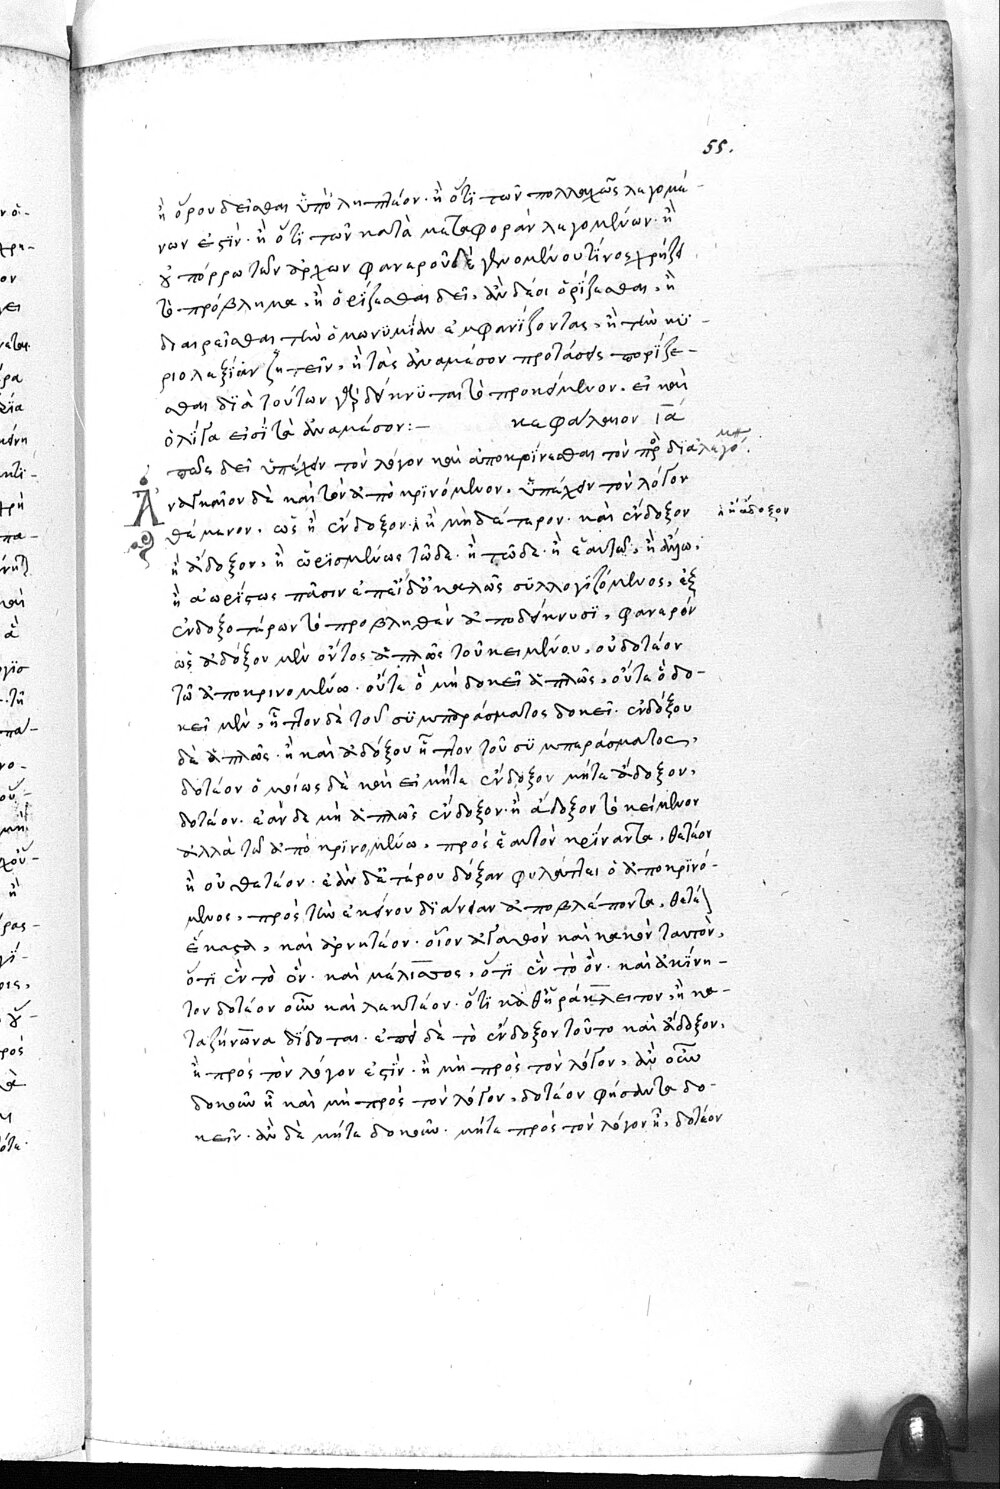 55.
ἢ ὅρου δεῖσθαι ὑπόληπτέον· ἢ ὅτι τῶν πολλαχῶς λεγομέ-
νων ἐστίν· ἢ ὅτι τῶν κατὰ μεταφορὰν λεγομένων· ἢ
οὐ πόρρω τῶν ἀρχῶν φανεροῦ δὲ γενομένου τίνος χρήζει
τὸ πρόβλημα, ἢ ὁρίζεσθαι δεῖ, ἂν δέοι ὁρίζεσθαι, ἢ
διαιρεῖσθαι τὴν ὁμωνυμίαν ἐμφανίζοντας, ἢ τὴν κυ-
ριολεξίαν ζητεῖν, ἢ τὰς ἀναμέσον προτάσεις πορίζε-
σθαι διὰ τούτων γὰρ δείκνυται τὸ προκείμενον. εἰ καὶ
ὀλίγα εἰσὶ τὰ ἀναμέσον:— κεφάλαιον ια
πῶς δεῖ ὑπέχειν τὸν λόγον καὶ ἀποκρίνεσθαι τὸν πρὸς διαλεγό.
Ἀναγκαῖον δὲ καὶ τὸν ἀποκρινόμενον, ὑπέχειν τὸν λόγον
θέμενον, ὡς ἢ ἔνδοξον ἢ μηδέτερον· καὶ ἔνδοξον
ἢ ἄδοξον
ἢ ἄδοξον, ἢ ὡρισμένως τῶδε· ἢ τῶδε· ἢ ἑαυτῶ, ἢ ἄλλω,
ἢ ἀορίστως πᾶσιν ἐπεὶ δ' ὁ καλῶς συλλογιζόμενος, ἐξ
ἐνδοξοτέρων τὸ προβληθὲν ἀποδείκνυσι, φανερὸν
ὡς ἀδόξου μὲν ὄντος ἁπλῶς τοῦ κειμένου, οὐ δοτέον
τῶ ἀποκρινομένω· οὔτε ὃ μὴ δοκεῖ ἁπλῶς, οὔτε ὃ δο-
κεῖ μὲν, ἧττον δὲ τοῦ συμπεράσματος δοκεῖ· ἐνδόξου
δὲ ἁπλῶς· ἢ καὶ ἀδόξου ἧττον τοῦ συμπεράσματος,
δοτέον ὁμοίως δὲ καὶ εἰ μήτε ἔνδοξον μήτε ἄδοξον,
δοτέον. ἐὰν δὲ μὴ ἁπλῶς ἔνδοξον· ἢ ἄδοξον τὸ κείμενον
ἀλλὰ τῶ ἀποκρινομένω, πρὸς ἑαυτὸν κρίναντα, θετέον
ἢ οὐ θετέον. ἐὰν δ' ἑτέρου δόξαν φυλάττει ὁ ἀποκρινό-
μενος, πρὸς τὴν ἐκείνου διάνοιαν ἀποβλέποντα, θετέον
ἕκαστα, καὶ ἀρνητέον. οἷον ἀγαθὸν καὶ κακὸν ταυτὸν,
ὅτι ἓν τὸ ὄν· καὶ μέλισσος, ὅτι ἓν τὸ ὄν· καὶ ἀκίνη-
τον δοτέον οὖν καὶ λεκτέον· ὅτι καθ' ἡράκλειτον, ἢ κα-
τα ζήνωνα δίδοται. ἐπεὶ δὲ τὸ ἔνδοξον τοῦτο καὶ ἄδοξον,
ἢ πρὸς τὸν λόγον ἐστὶν· ἢ μὴ πρὸς τὸν λόγον, ἂν οὖν
δοκοῦν ἦ καὶ μὴ πρὸς τὸν λόγον, δοτέον φήσαντα δο-
κεῖν· ἂν δὲ μήτε δοκοῦν· μήτε πρὸς τὸν λόγον ἦ, δοτέον